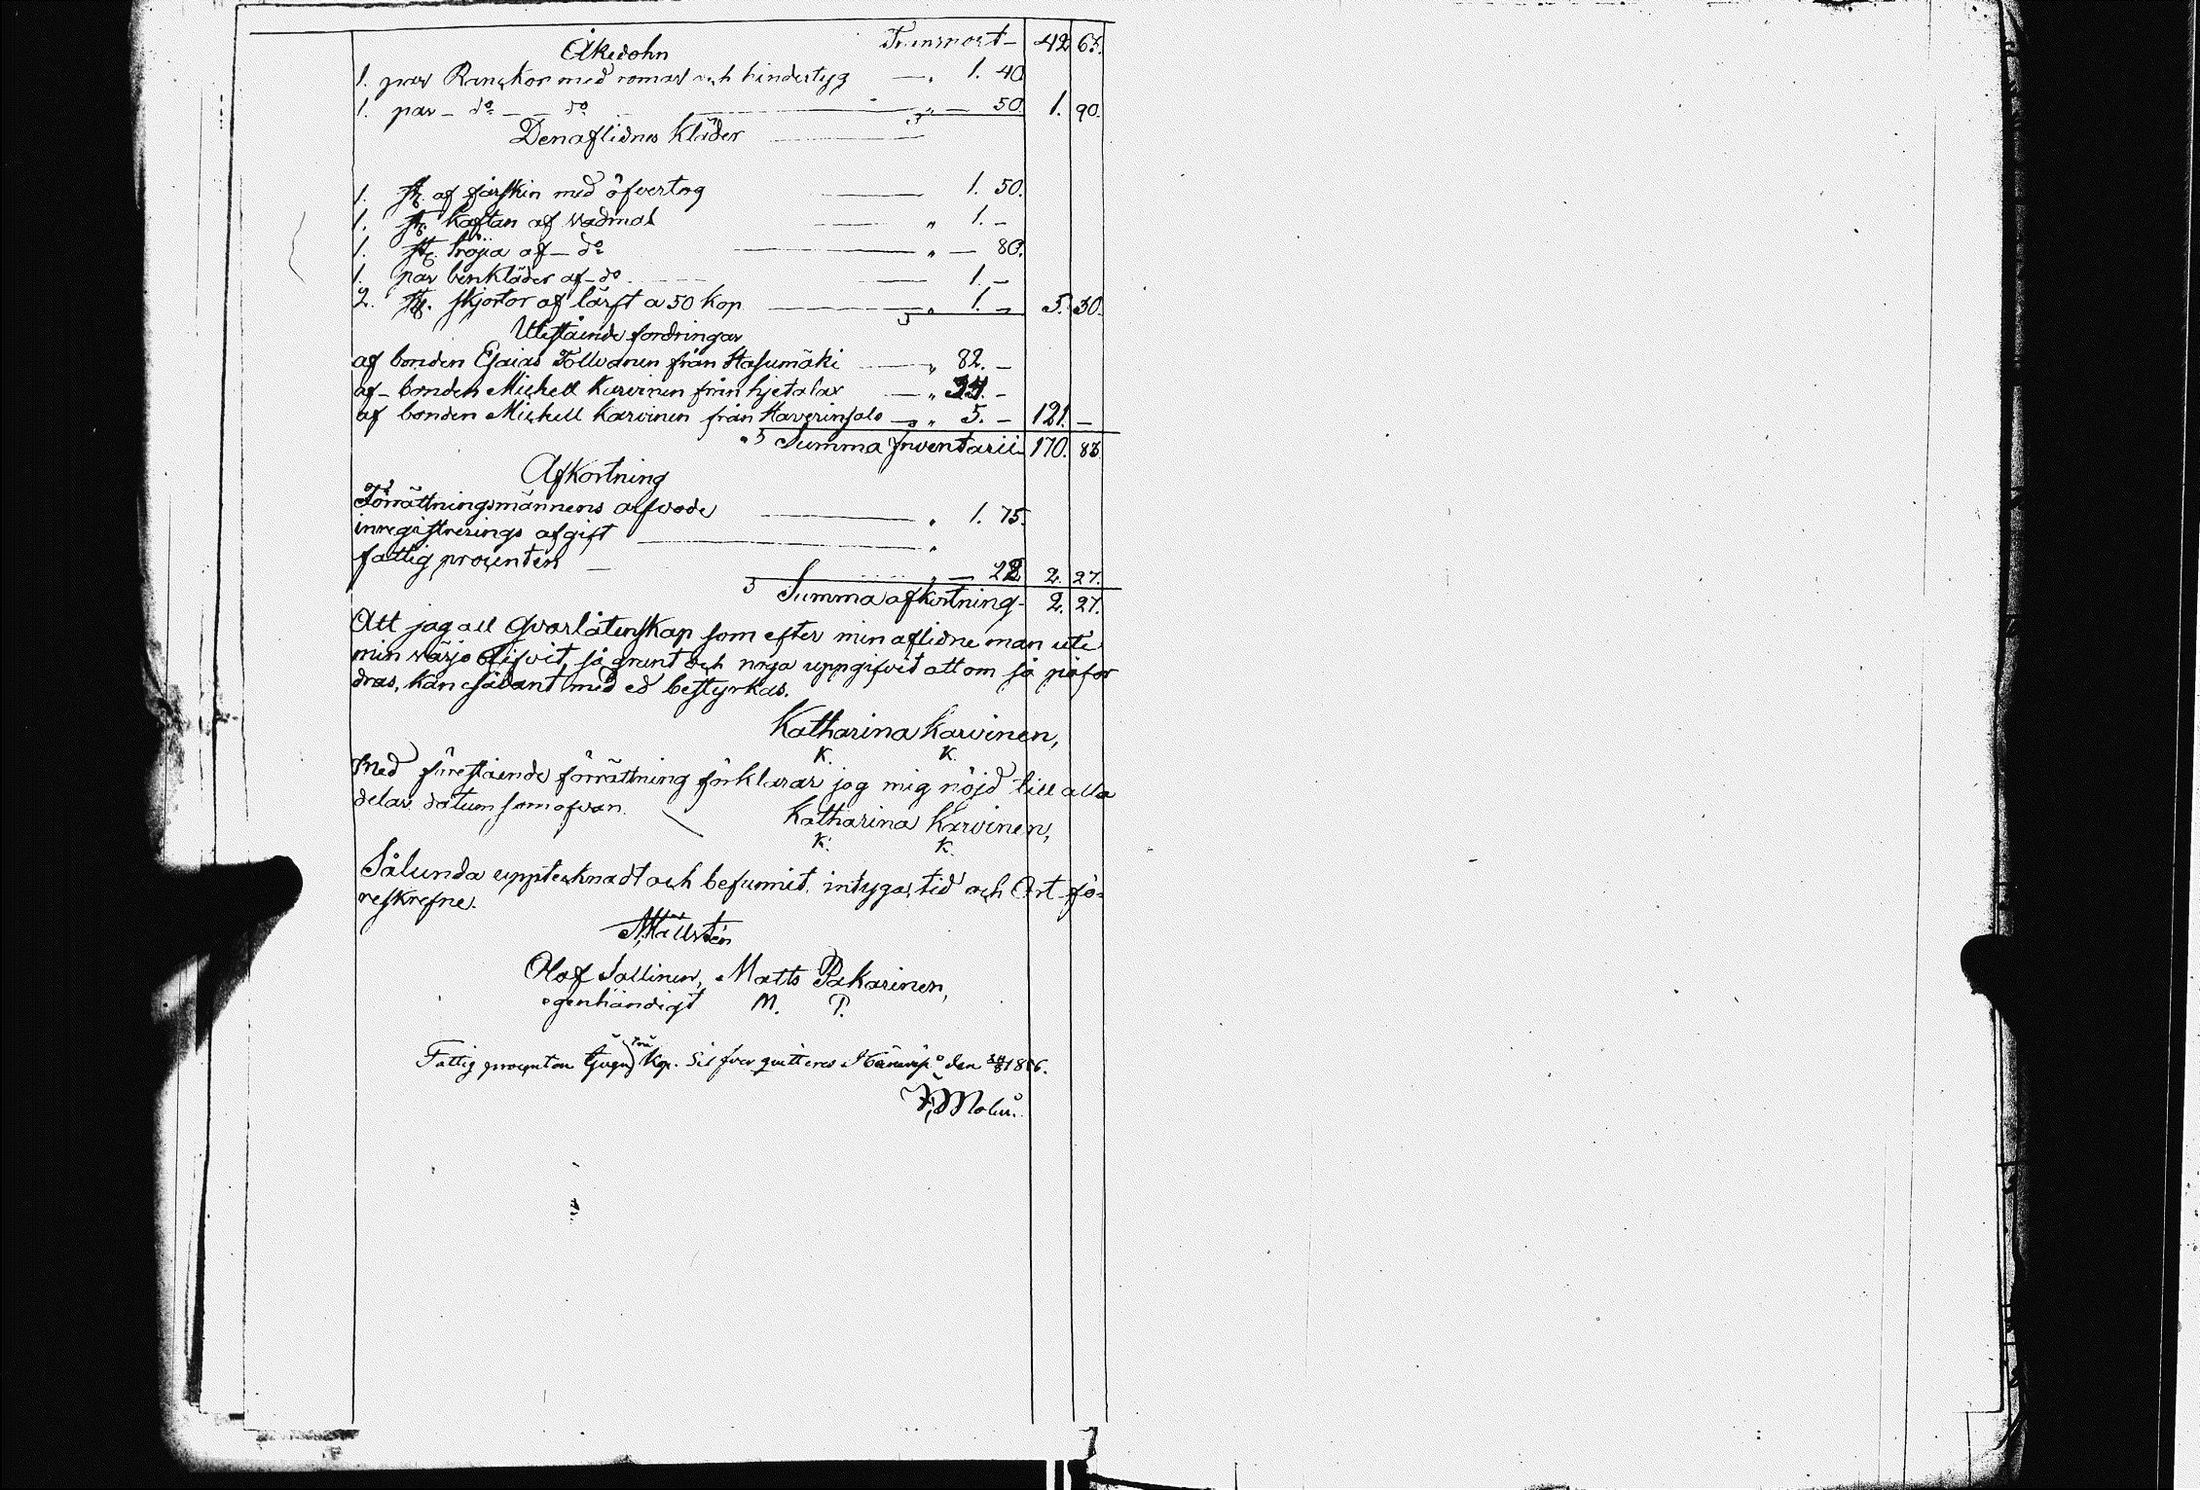 Transport – 42 65.
Åkedohn
1. par Renskor med remar och hindertyg — " 1. 40
1. par – do — do — " — 50. 1. 90.
Den aflidnes Kläder
1. st. af fårskin med öfvertog — 1. 50.
1. st. kaftan af vadmal — " 1. –
1. st. tröja af – do — " — 80.
1. par benkläder af – do — 1. –
2. st. skjortor af lärft a 50 kop — " 1. – 5. 30.
Utestående fordringar
af bonden Esaias Tolvanen från Hasumäki — " 82. –
af – bonden Michell Karvinen från hjetalax — " 34. –
af bonden Michell Karvinen från Haverinsalo — " 5. – 121. –
Summa Inventarii 170. 85
Afkortning
Förrättningsmännens arfvode — " 1. 75.
inregistrerings afgift — "
fattig procenten — " — 22 2. 27.
Summa afkortning – 2. 27.
Att jag all qvarlåtenskap som efter min aflidne man uti
min värjo blifvit, så grant och noga uppgifvit att om så påfor
dras, kan sådant med ed bestyrkas.
Katharina Karvinen,
K. K.
Med förestående förrättning förklarar jag mig nöjd till alla
delar. datum som ofvan.
Katharina Karvinen,
K. K.
Sålunda upptecknadt och befunnit, intygas, tid och Ort fö=
reskrefne.
Olof Sallinen, Matts Pakarinen,
egenhändigt M. P.
Fattig procenten tjugu två Kop. Silfver quitteras den 1856.